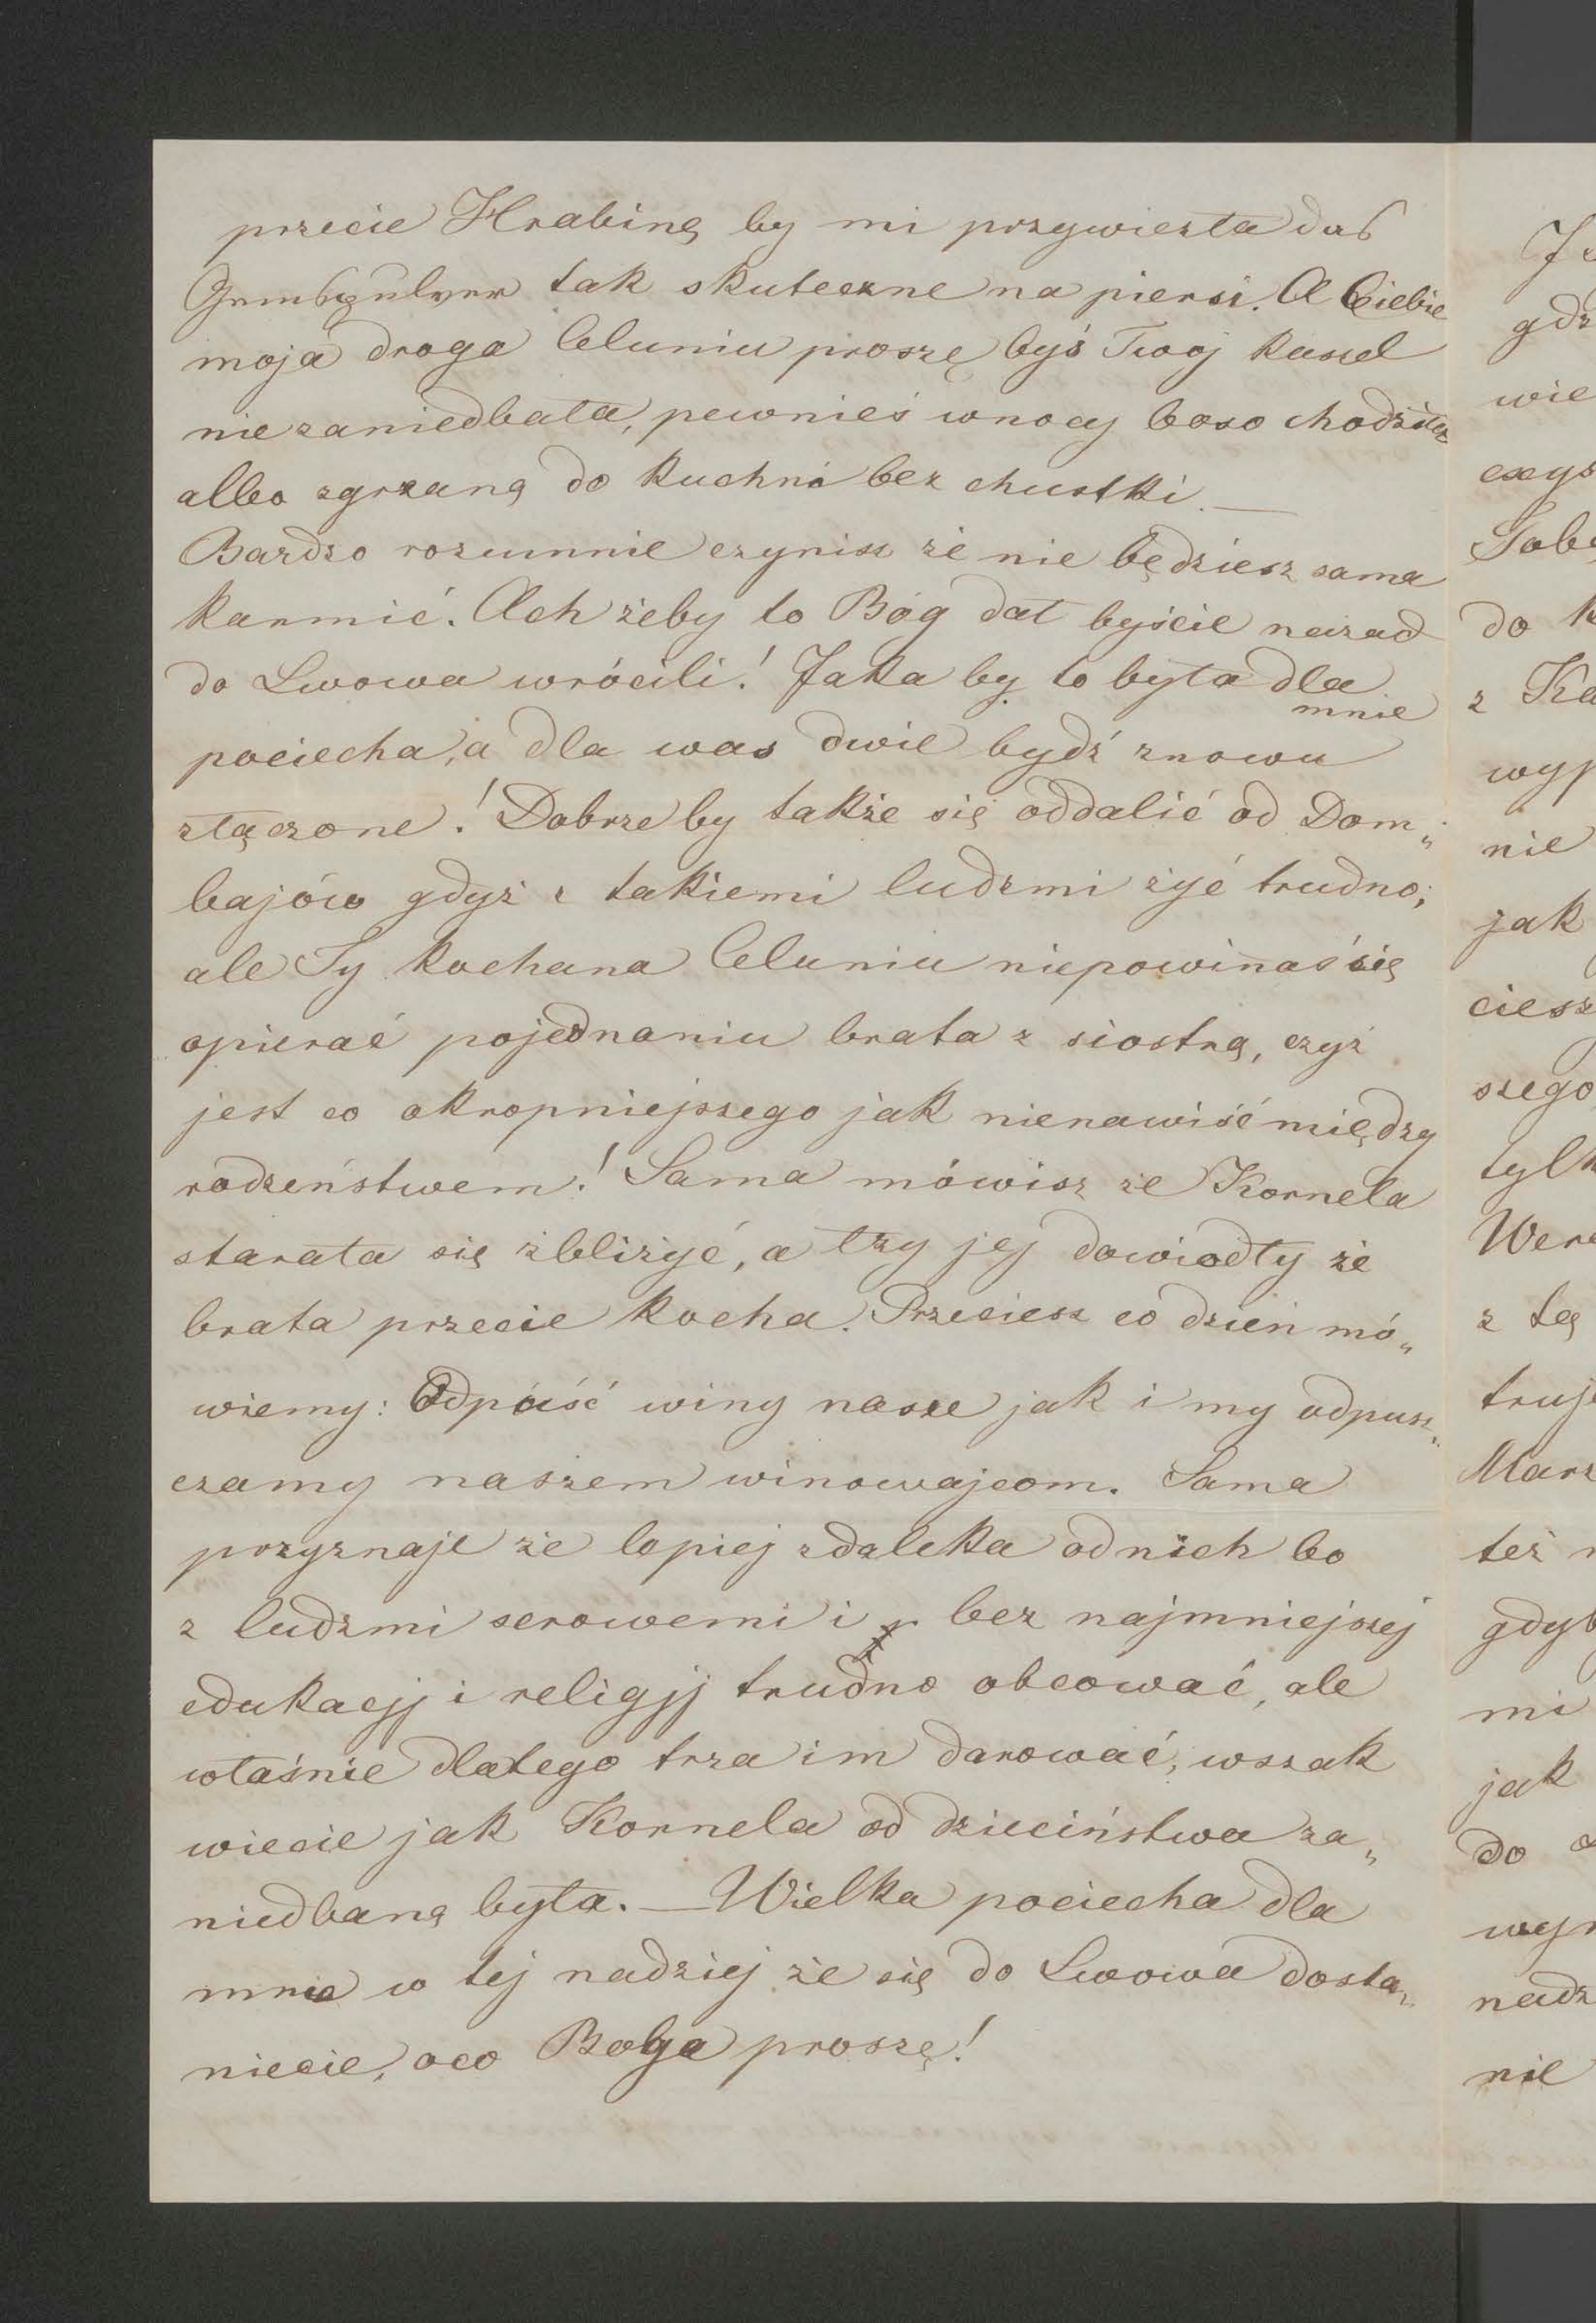 przecie Hrabinę by mi przywiezła das
tak skuteczne na piersi. A Ciebie
moja droga Celuniu proszę byś Twoj kassel
nie zaniedbała, pewnieś wnocy boso chodziła
albo zgrzaną do kuchni bez chustki. —
Bardzo rozumnie czynisz że nie będziesz sama
karmić. Ach żeby to Bóg dał byście nazad
do Lwowa wrócili! Jaka by to była dla
mnie
pociecha, a dla was dwie bydź znowu
złączone! Dobrze by także się oddalić od Dom„
bajów gdyż z takiemi ludzmi żyć trudno;
ale Ty kochana Celuniu niepowinaś się
opierać pojednaniu brata z siostrą, czyż
jest co okropniejszego jak nienawiść między
rodzeństwem! Sama mówisz że Kornela
starała się zbliżyć, a łzy jej dowiodły że
brata przecie kocha. Przeciesz co dzień mó„
wiemy: Odpuść winy nasze jak i my odpusz„
czamy naszem winowajcom. Sama
przyznaje że lepiej zdaleka od nich bo
z ludzmi serowemi i bez najmniejszej
edukacji i religij trudno obcować, ale
właśnie dlatego trza im darować, wszak
wiecie jak Kornela od dzieciństwa za„
niedbaną była. — Wielka pociecha dla
mnie w tej nadziej że się do Lwowa dosta„
niecie, oco Boga proszę!
gdz
wie
do k
z Ka
wyp
nie
jak
ciesz
szego
tylk
Were
z tą
truje
Marz
też n
gdyb
mi
jak
do
wyn
nadz
nie